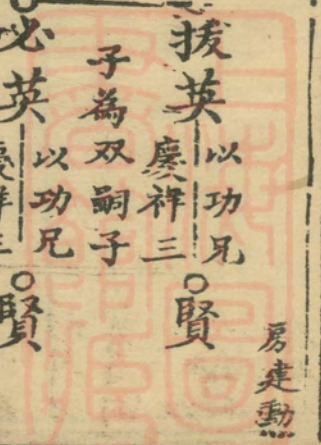 房建勳
拔英
以功兄
慶祥三
子為双嗣子
賢
必英
以功兄
慶祥三
賢